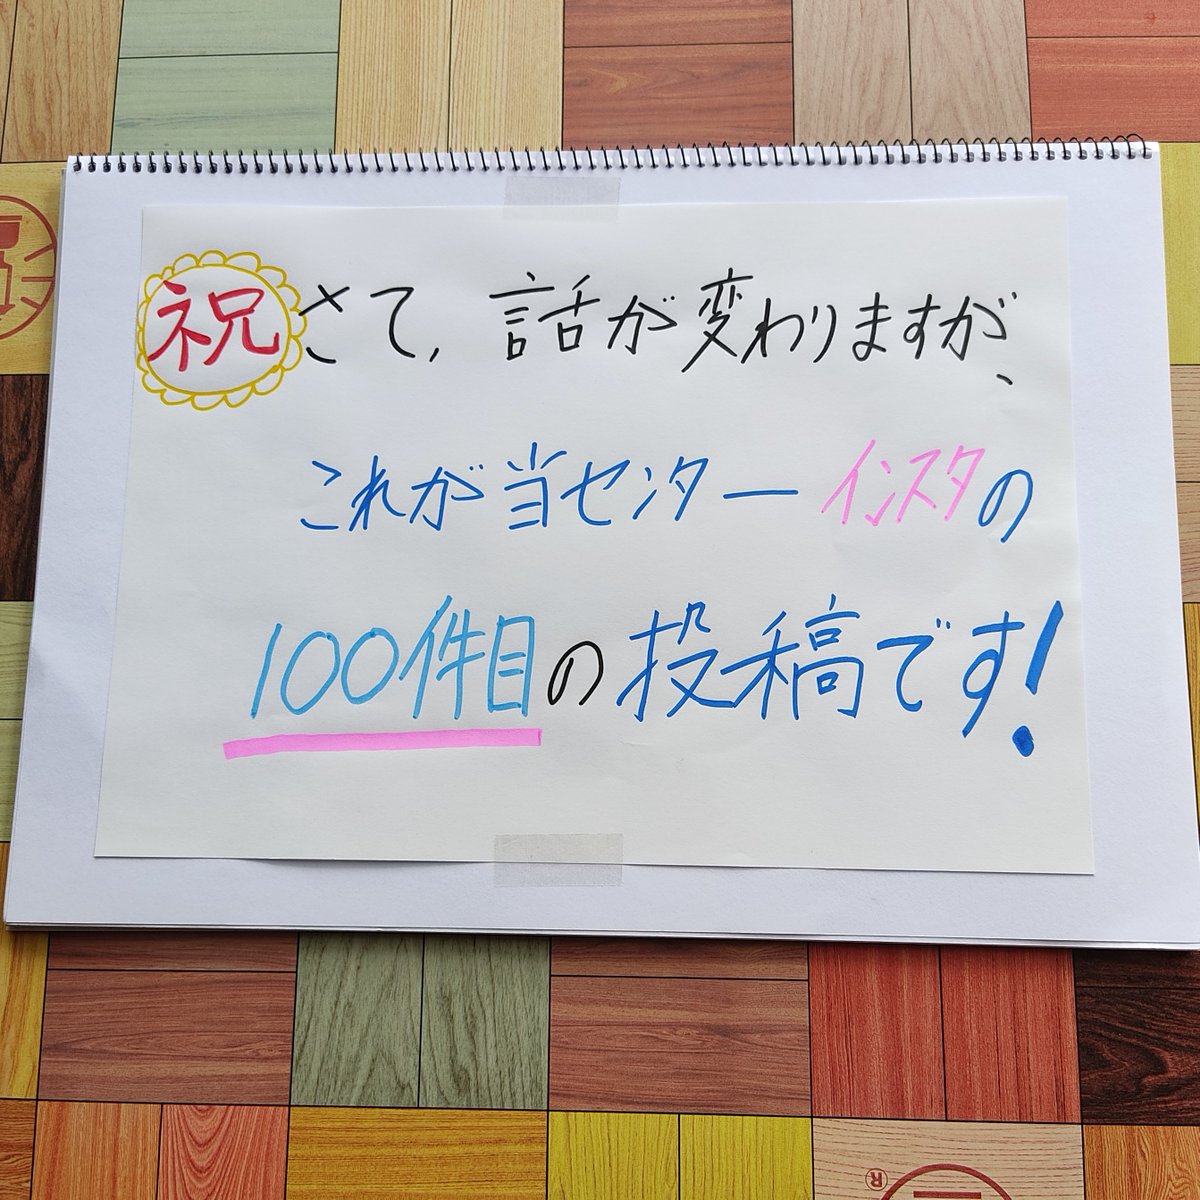 祝さて、話が変わりますが、
これが当センターインスタの
100件目の投稿です!
®